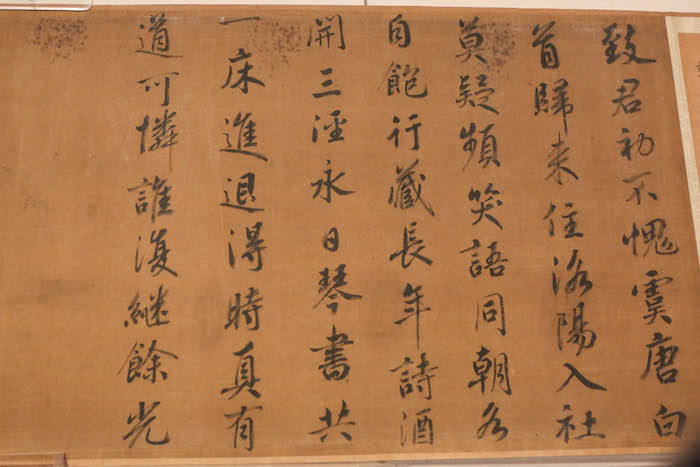 致君初不愧虞唐白
首歸来住洛陽入社
莫疑頻笑語同朝各
自飽行藏長年詩酒
開三涇永日琴書共
一床進退得時真有
道可憐誰復継餘光